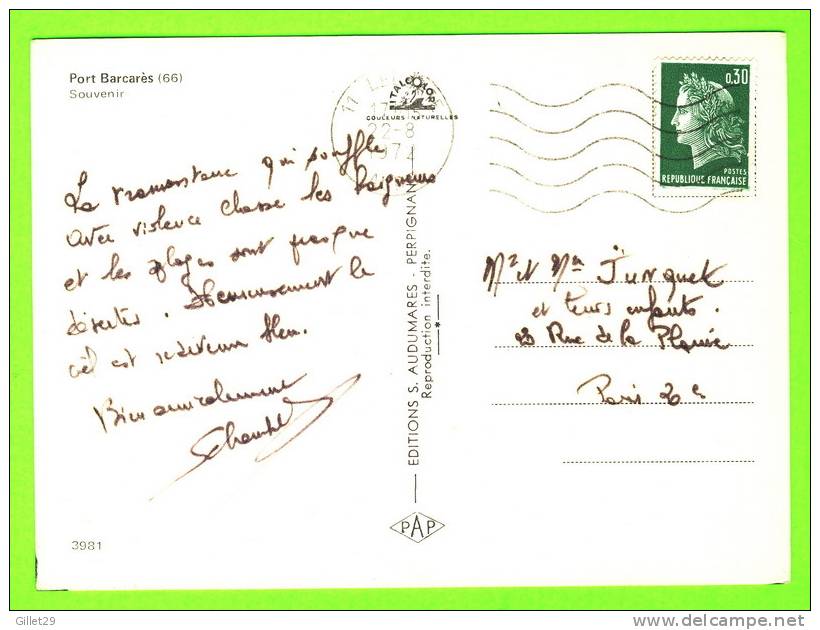 Port Barcarès (66)
Souvenir
ITALCOLOR
COULEURS NATURELLES
22-8
0,30
POSTES
REPUBLIQUE FRANÇAISE
La tramontane qui souffle
avec violence chasse les baigneurs
et les plages sont presque
désertes. Heureusement le
ciel est redevenu bleu.
Bien amicalement
EDITIONS S. AUDUMARES - PERPIGNAN
Reproduction interdite.
Mr et Mme Junquet
et leurs enfants.
Rue de la Plaine
Paris 20e
PAP
3981
Gillet29
www.delcampe.net